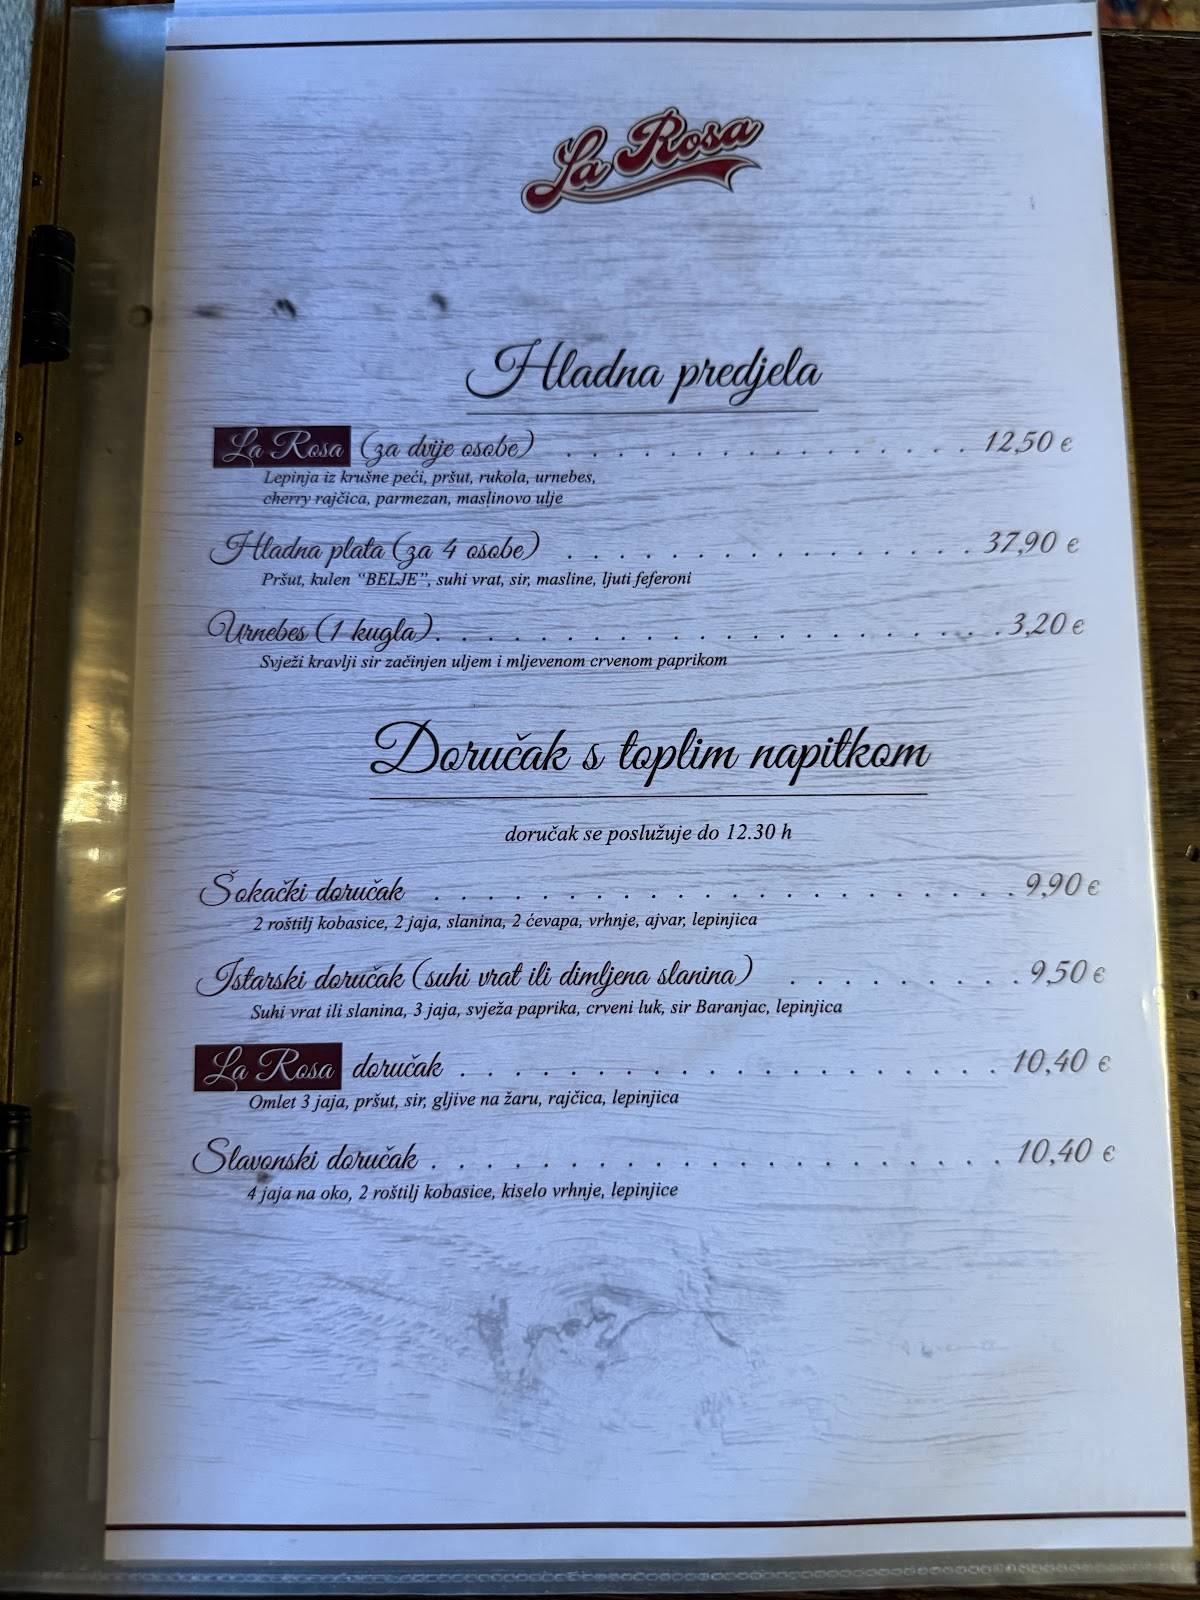 La Rosa
Hladna predjela
La Rosa (za dvije osobe) . . . . . . . . . . . . . . . . 12,50 €
Lepinja iz krušne peći, pršut, rukola, urnebes,
cherry rajčica, parmezan, maslinovo ulje
Hladna plata (za 4 osobe) . . . . . . . . . . . . . . . . 37,90 €
Pršut, kulen “BELJE”, suhi vrat, sir, masline, ljuti feferoni
Urnebes (1 kugla). . . . . . . . . . . . . . . . . . . . . . 3,20 €
Svježi kravlji sir začinjen uljem i mljevenom crvenom paprikom
Doručak s toplim napitkom
doručak se poslužuje do 12.30 h
Šokački doručak . . . . . . . . . . . . . . . . . . . . . . 9,90 €
2 roštilj kobasice, 2 jaja, slanina, 2 ćevapa, vrhnje, ajvar, lepinjica
Istarski doručak (suhi vrat ili dimljena slanina) . . . . . . . . . 9,50 €
Suhi vrat ili slanina, 3 jaja, svježa paprika, crveni luk, sir Baranjac, lepinjica
La Rosa doručak . . . . . . . . . . . . . . . . . . . . 10,40 €
Omlet 3 jaja, pršut, sir, gljive na žaru, rajčica, lepinjica
Slavonski doručak . . . . . . . . . . . . . . . . . . . . . 10,40 €
4 jaja na oko, 2 roštilj kobasice, kiselo vrhnje, lepinjice